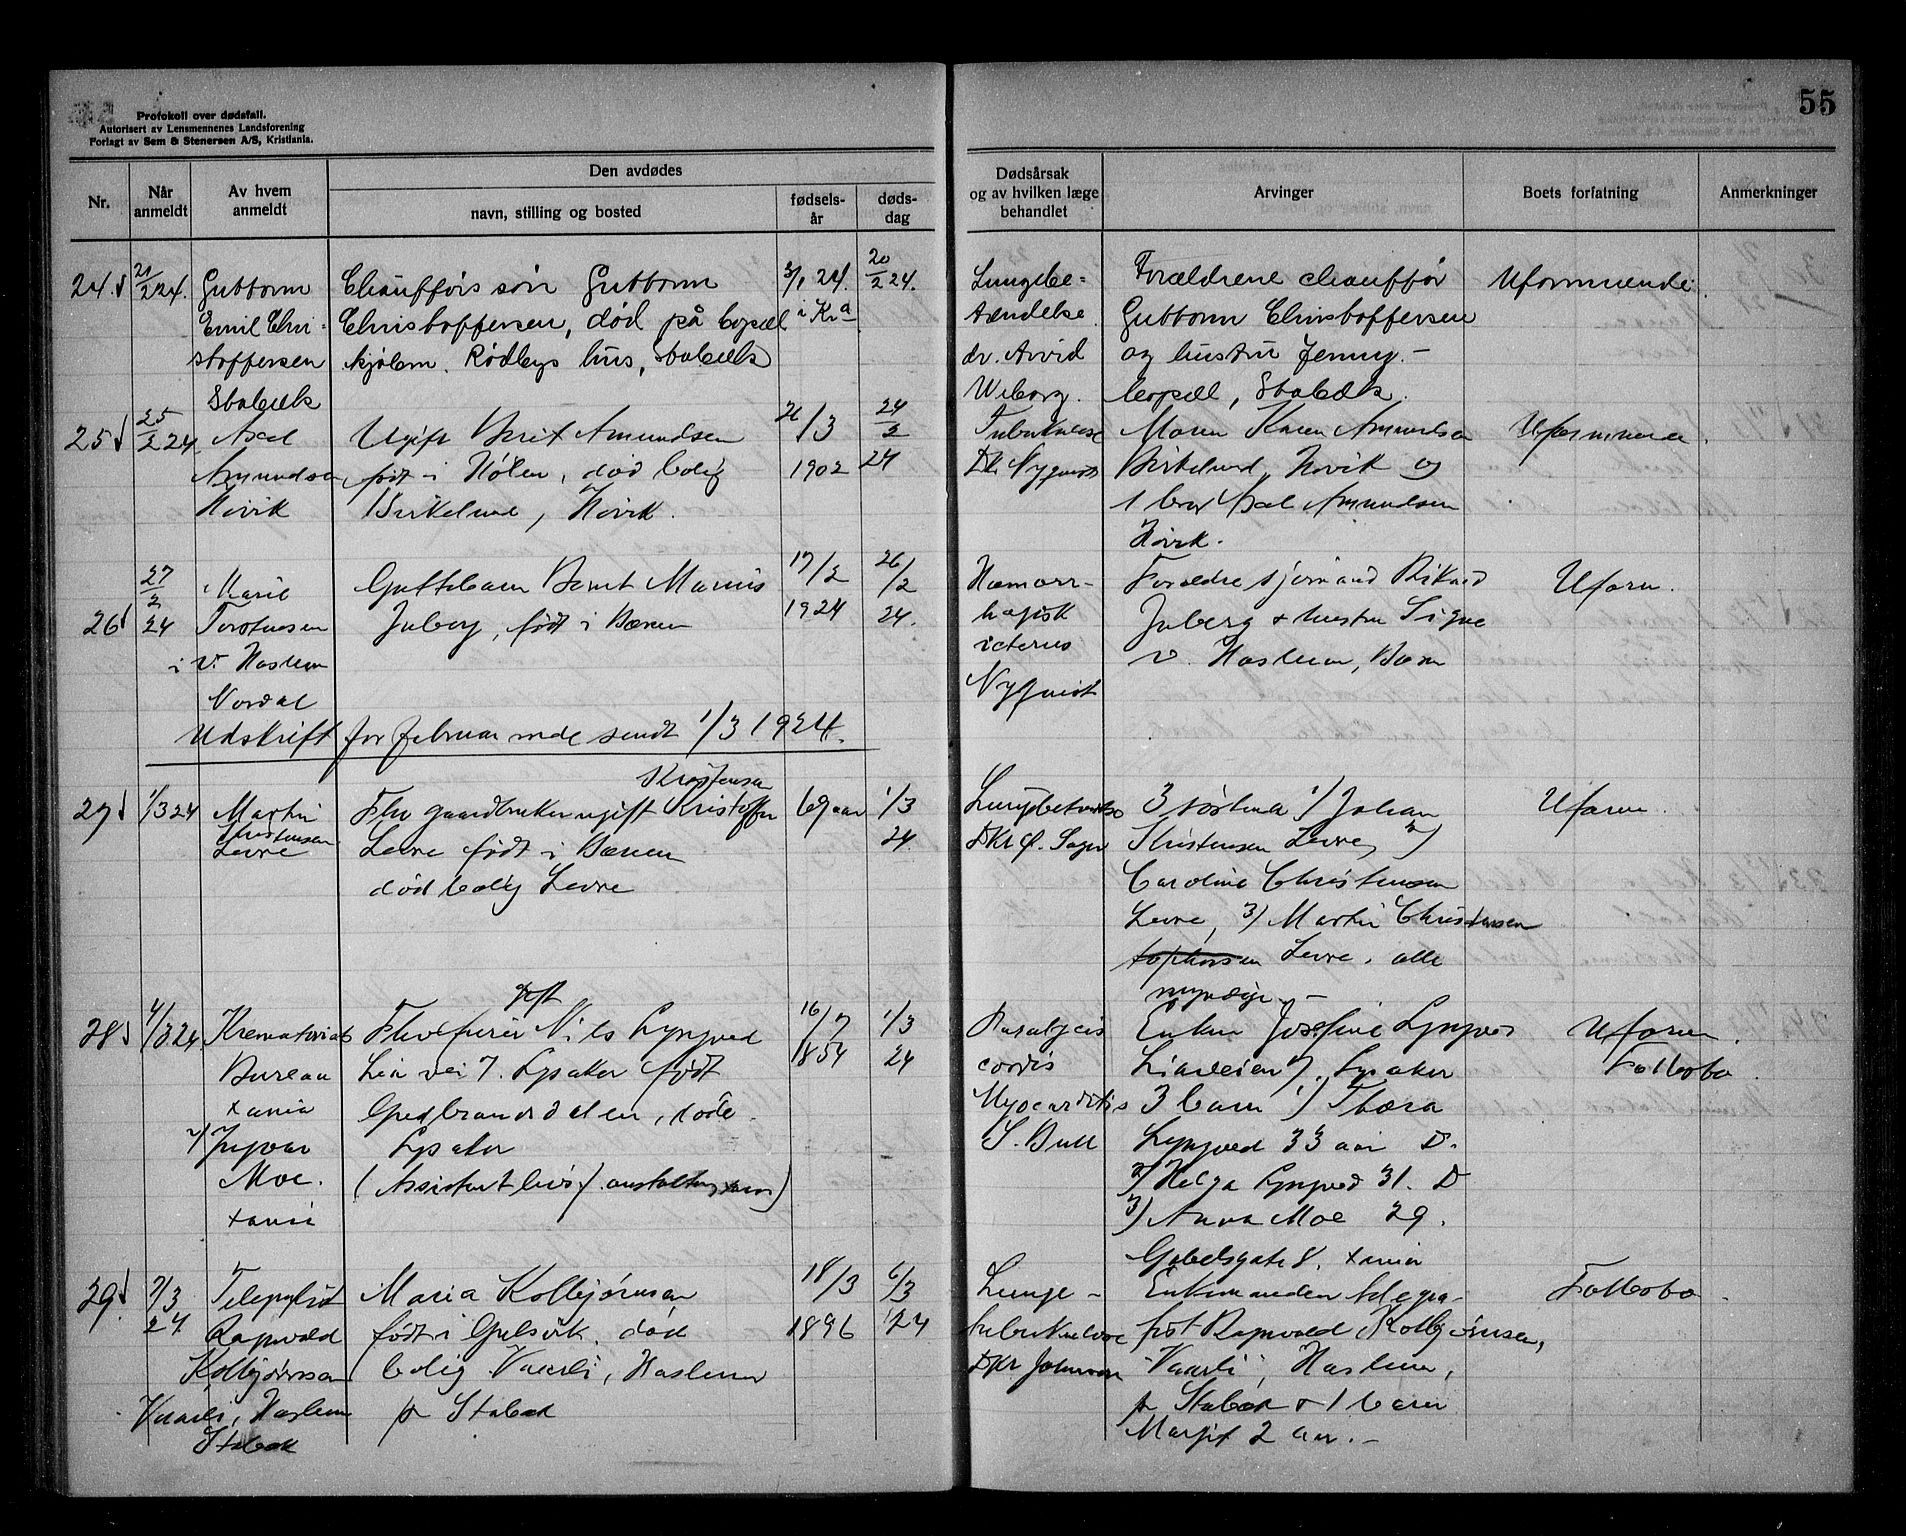 55
Protokoll over dødsfall.
Autorisert av Lensmennenes Landsforening
Forlagt av Sem & Stenersen A/S, Kristiania.
Nr.
Når anmeldt
Av hvem anmeldt
Den avdødes
navn, stilling og bosted
fødselsår
dødsdag
Dødsårsak og av hvilken læge behandlet
Arvinger
Boets forfatning
Anmerkninger
24.
21/2 24.
Guttorm
Emil Chri-
stoffersen
Stabæk
Chaufførs søn Guttorm
Christoffersen, død på
Rødbys hus, Stabæk
3/1 24.
i Kr.a
20/2 24.
Lungebe-
tændelse
dr. Arvid
Wiborg.
Forældrene chauffør
Guttorm Christoffersen
og hustru Jenny.-
Stabæk.
Uformuende.
25
25/2 24
Axel
Amundsen
Høvik
Ugift Berit Amundsen
født i Hølen, død bolig
Birkelund, Høvik.
21/3
1902
24/2
24
Tuberkulose
Dr Nyquist
Moren Karen Amundsen
Birkelund, Høvik og
1 bror Axel Amundsen
Høvik.
Uformuende.
26
27/2
24
Marie
Torstensen
i v. Haslum
Nordal
Guttebarn Bernt Marius
Juberg, født i Bærum
17/2
1924
26/2
24.
Hæmorr-
hagisk
icterus
Nyquist
Forældre
Juberg + hustru Signe
v. Haslum, Bærum
Uform.
Udskrift for februar mde sendt 1/3 1924.
27
1/3 24
Martin
Kristensen
Levre
Kristensen
Fhv gaardbruker ugift Kristoffer
Levre født i Bærum
død bolig Levre
69 aar
1/3
24.
3 søskende 1) Johan
Kristensen Levre, 2)
Caroline Christensen
Levre, 3) Martin Christensen
Levre. alle
myndige.-
Uform.
28
4/3 24
Krematoriets
Bureau
Xania
2) Ingvar
Moe.
Xania
gift
Nils Lyngved
Lia vei 7. Lysaker født
Gudbrandsdalen, døde
Lysaker
16/7
1854
1/3
24
Paralysis
cordis
Myocarditis
S. Bull
Enken Josefine Lyngved
Liaveien 7. Lysaker
3 barn 1) Thora
Lyngved 33 aar D.
2) Helga Lyngved 31. D
3) Anna Moe 29.
Gabelsgate 8. Xania
Uform.
Fællesbo.
29
7/3
24.
Ragnvald
Kolbjørnsen
Vaarli, Haslum
Stabæk
Maria Kolbjørnsen
født i Gulsvik. død
bolig Vaarli, Haslum
pr Stabæk
18/3
1896
6/3
24
Lunge-
tuberkulose
Dr Johnsen
Enkemanden telegra-
fist Ragnvald Kolbjørnsen,
"Vaarli", Haslum,
pr Stabæk + 1 barn
Margit 2 aar.-
Fællesbo.